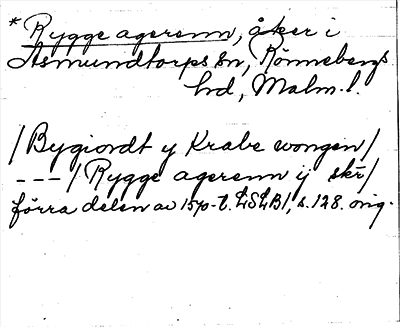 * Rygge agerenn, åker i
Asmundtorps sn, Rönnebergs
hd, Malm. l.
/Bygiordt y Krabe wongen/
--- / Rygge agerenn ij skr/
förra delen av 1570-t. LSLB1, s. 128. orig.